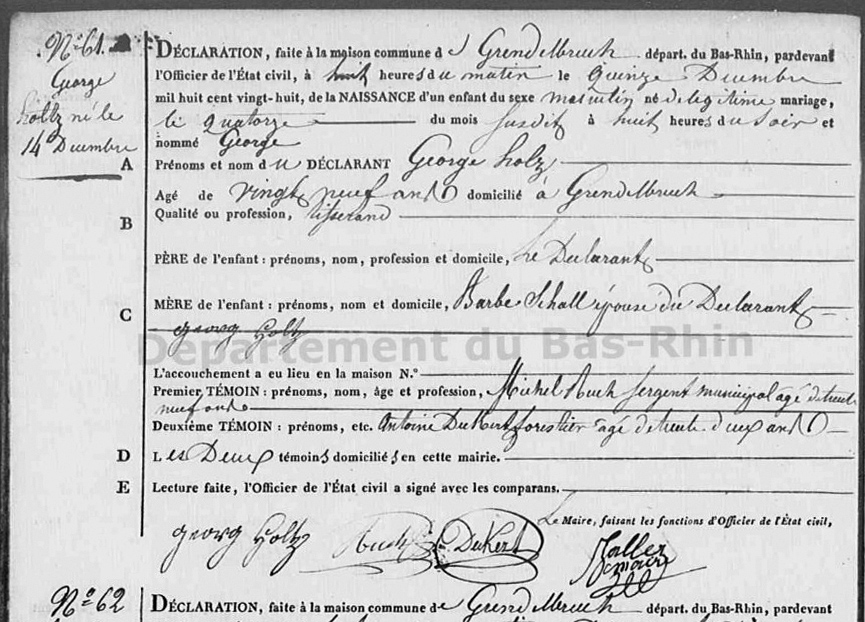 Nº 61.
George
holtz né le
14 Decembre
DÉCLARATION, faite à la maison commune de Grendelbruch départ. du Bas-Rhin, pardevant
l'Officier de l'État civil, à huit heures du matin le Quinze Decembre
mil huit cent vingt-huit, de la NAISSANCE d'un enfant du sexe masculin né de legitime mariage,
le Quatorze du mois susdit à huit heures du soir et
nommé George
A Prénoms et nom du DÉCLARANT George holz
Agé de vingt neuf ans domicilié à Grendelbruch
B Qualité ou profession, tisserand
PÈRE de l'enfant : prénoms, nom, profession et domicile, Le Declarant
C MÈRE de l'enfant : prénoms, nom et domicile, Barbe Schall épouse du Declarant
georg Holtz
Département du Bas-Rhin
L'accouchement a eu lieu en la maison N.º
Premier TÉMOIN : prénoms, nom, âge et profession, Michel Ruch sergent municipal agé de trente
neuf ans
Deuxième TÉMOIN : prénoms, etc. Antoine DuKert forestier agé de trente deux ans
D Les Deux témoins domiciliés en cette mairie.
E Lecture faite, l'Officier de l'État civil a signé avec les comparans.
Le Maire, faisant les fonctions d'Officier de l'État civil,
georg Holtz Ruch DuKert
maire
Nº 62 DÉCLARATION, faite à la maison commune de Grendelbruch départ. du Bas-Rhin, pardevant